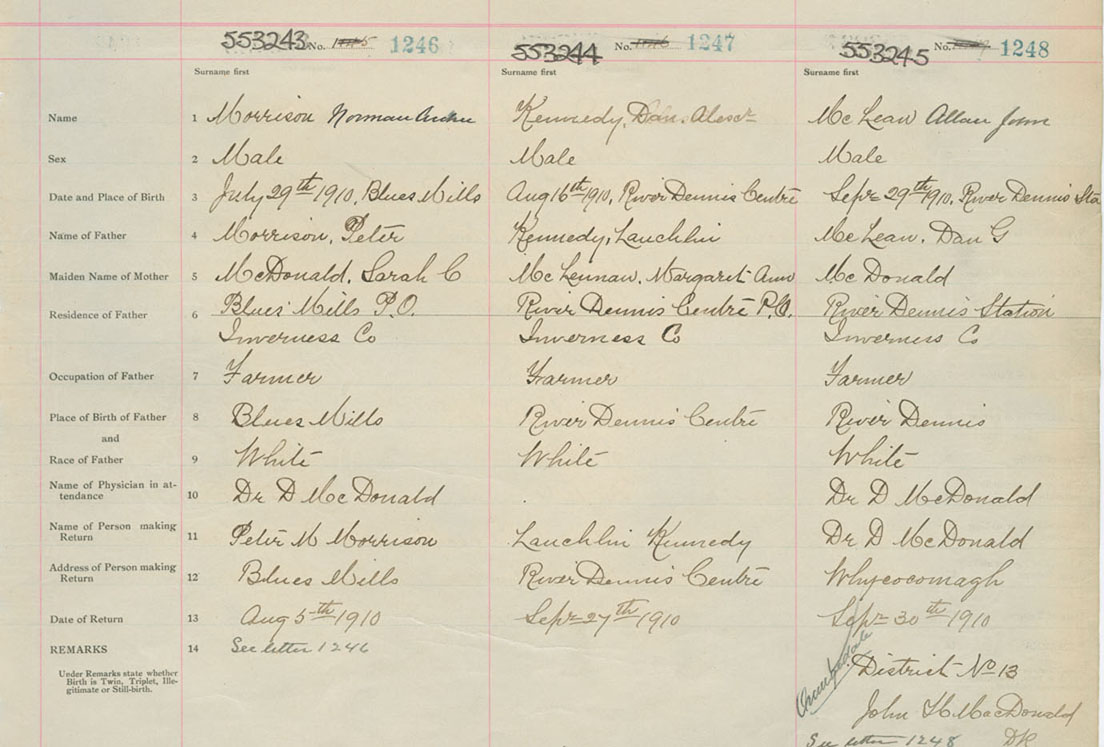 553243 No. 1246 553244 No. 1247 553245 No. 1248
Surname first Surname first Surname first
Name 1 Morrison Norman Kennedy, Dan. Alexr McLean Allan John
Sex 2 Male Male Male
Date and Place of Birth 3 July 29th 1910, Blues Mills Aug 16th 1910, River Dennis Centre Sepr 29th 1910, River Dennis Sta
Name of Father 4 Morrison, Peter Kennedy, Lauchlin McLean, Dan G
Maiden Name of Mother 5 McDonald, Sarah C McLennan, Margaret Ann McDonald
Residence of Father 6 Blues Mills P.O. River Dennis Centre P.O. River Dennis Station
Inverness Co Inverness Co Inverness Co
Occupation of Father 7 Farmer Farmer Farmer
Place of Birth of Father 8 Blues Mills River Dennis Centre River Dennis
and
Race of Father 9 White White White
Name of Physician in at-
tendance 10 Dr D McDonald Dr D McDonald
Name of Person making
Return 11 Peter M Morrison Lauchlin Kennedy Dr D McDonald
Address of Person making
Return 12 Blues Mills River Dennis Centre Whycocomagh
Date of Return 13 Aug 5th 1910 Sepr 27th 1910 Sepr 30th 1910
REMARKS 14 See letter 1246
Under Remarks state whether
Birth is Twin, Triplet, Ille-
gitimate or Still-birth.
District No 13
John H MacDonald
See letter 1248 DR